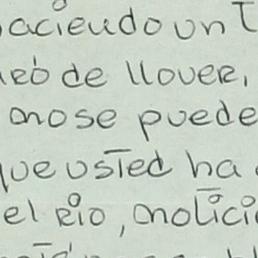 aciendo un T
eó de llover,
nose puede
que usted ha
el Río, Notici